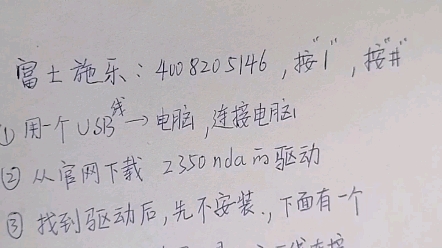 富士施乐：4008205146，按"1"，按"#"
① 用一个USB线→电脑，连接电脑
② 从官网下载 2350nda的驱动
③ 找到驱动后，先不安装.，下面有一个